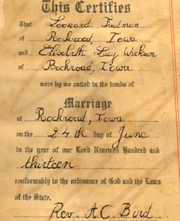 This Certifies
That Leonard Fulman
of Rockroad, Iowa
and Elisabeth Lucy Wickson
of Rockroad, Iowa
were by me united in the bonds of
Marriage
at Rockroad, Iowa
on the 24th day of June
in the year of our Lord Nineteen Hundred and
thirteen
conformably to the ordinance of God and the Laws
of the State.
Rev. A.C. Bird